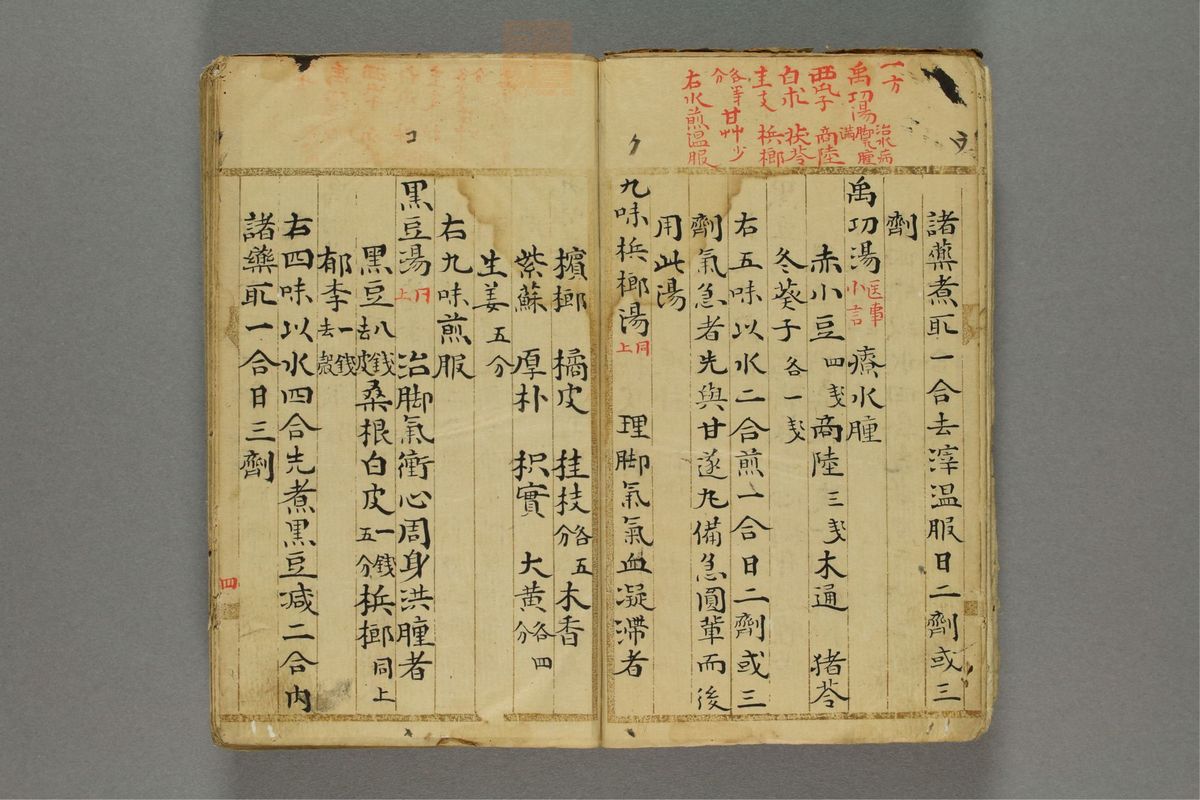 一方
禹功湯 治水病脚氣腫満
商陸
白朮 茯苓
桂支 梹榔
各等分 甘艸少
右水煎温服
諸藥煮取一合去滓温服日二劑或三
劑
禹功湯 医事小言 療水腫
赤小豆 四戔 商陸 三戔 木通 猪苓
冬葵子 各一戔
右五味以水二合煎一合日二劑或三
劑氣急者先與甘遂丸備急圓軰而後
用此湯
九味梹榔湯 同上 理脚氣氣血凝滯者
ク
檳榔 橘皮 桂枝 各五分 木香
紫蘇 厚朴 枳實 大黄 各四分
生姜 五分
右九味煎服
コ
黒豆湯 同上 治脚氣衝心周身洪腫者
黒豆 八錢去皮 桑根白皮 一錢五分 梹榔 同上
郁李 一錢去殼
右四味以水四合先煮黒豆減二合内
諸藥取一合日三劑
四